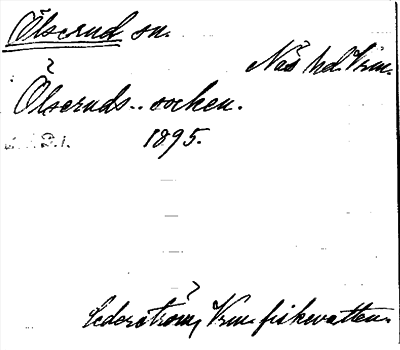 Ölserud sn.
Näs hd. Vrm.
Ölseruds-socken.
1895.
Cederström, Vrm. fiskevatten.